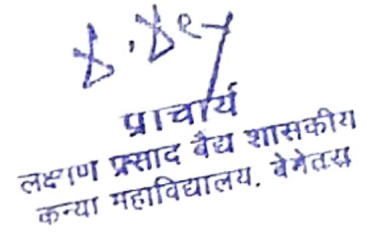 प्राचार्य
लक्ष्मण प्रसाद बैद्य शासकीय
कन्या महाविद्यालय, बेमेतरा